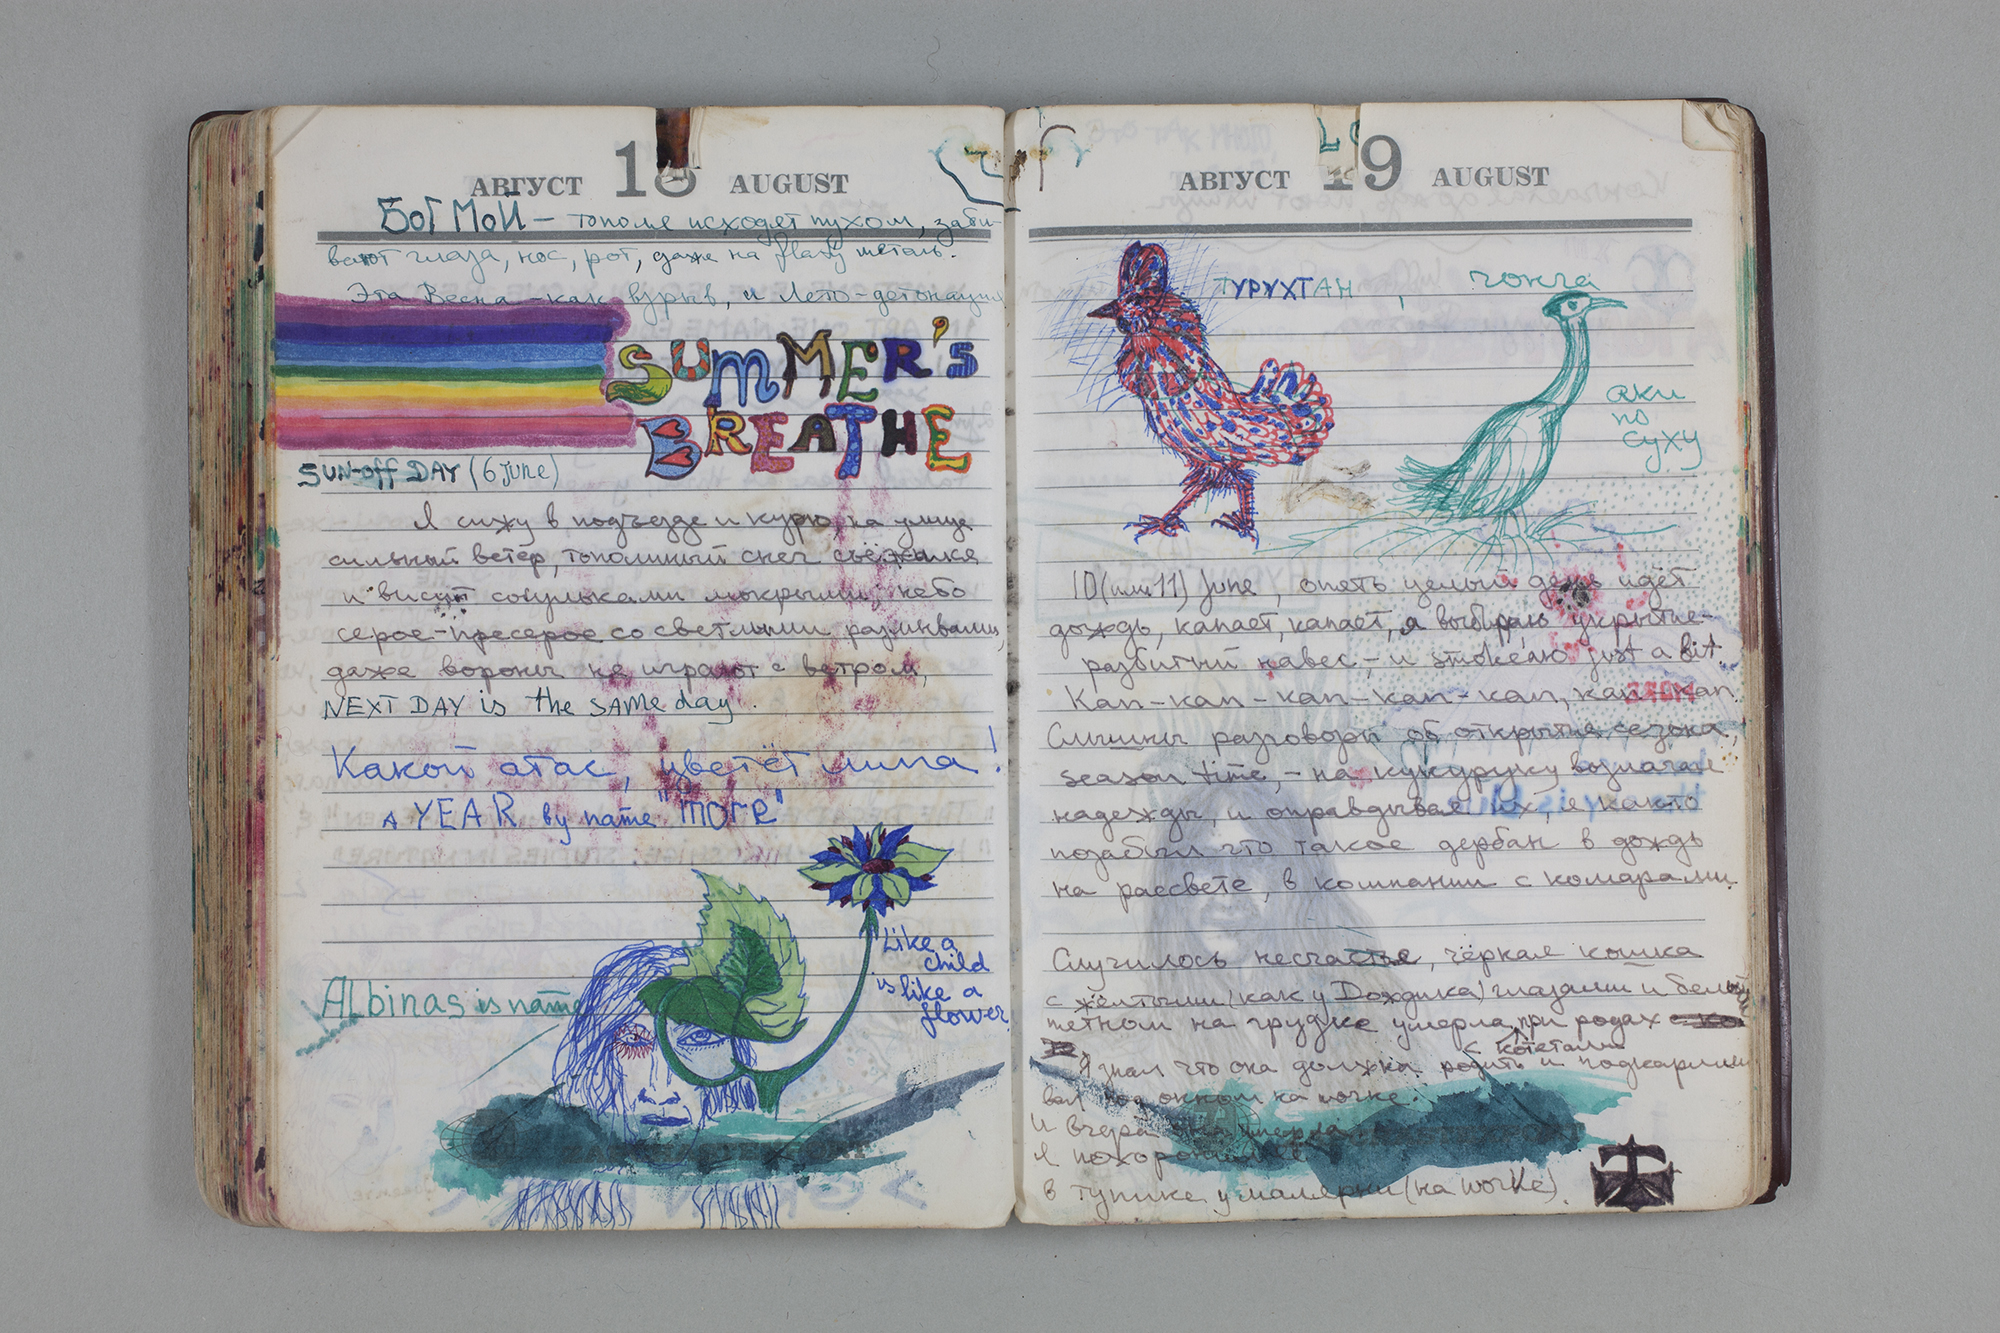 АВГУСТ 18 AUGUST
БОГ МОЙ – тополя исходят пухом, заби-
вают глаза, нос, рот, даже на flaty метёль.
Эта Весна – как взрыв, и Лето – детонация
SUMMER'S
BREATHE
SUN-off DAY (6 June)
Я сижу в подъезде и курю, на улице
сильный ветер, тополиный снег съёжился
и висит сосульками мокрыми, небо
серое-пресерое со светлыми
даже вороны не играют с ветром,
NEXT DAY is the SAME day.
Какой атас, цветёт липа!
A YEAR by name "more"
Like a
child
is like a
flower
Albinas is name
АВГУСТ 19 AUGUST
ТУРУХТАН, чомга
аки
по
суху
10 (или 11) June, опять целый день идёт
дождь, капает, капает, а выбираю укрытие –
разбитый навес, – и smokeлю just a bit.
Кап – кап – кап – кап – кап, кап – кап.
Слышны разговоры об открытии сезона,
season time, – на кукуруку возлагая
надежды, и оправдывая их, я както
позабыл что такое дербан в дождь
на рассвете, в компании с комарами.
Случилось несчастье, чёрная кошка
с жёлтыми (как у Дождика) глазами и белым
пятном на грудке умерла при родах
с котятами
Я знал что она должна родить и подкармли
вал под окном на точке.
И вчера она умерла.
я похоронил
в тупике у малярки (на worke).